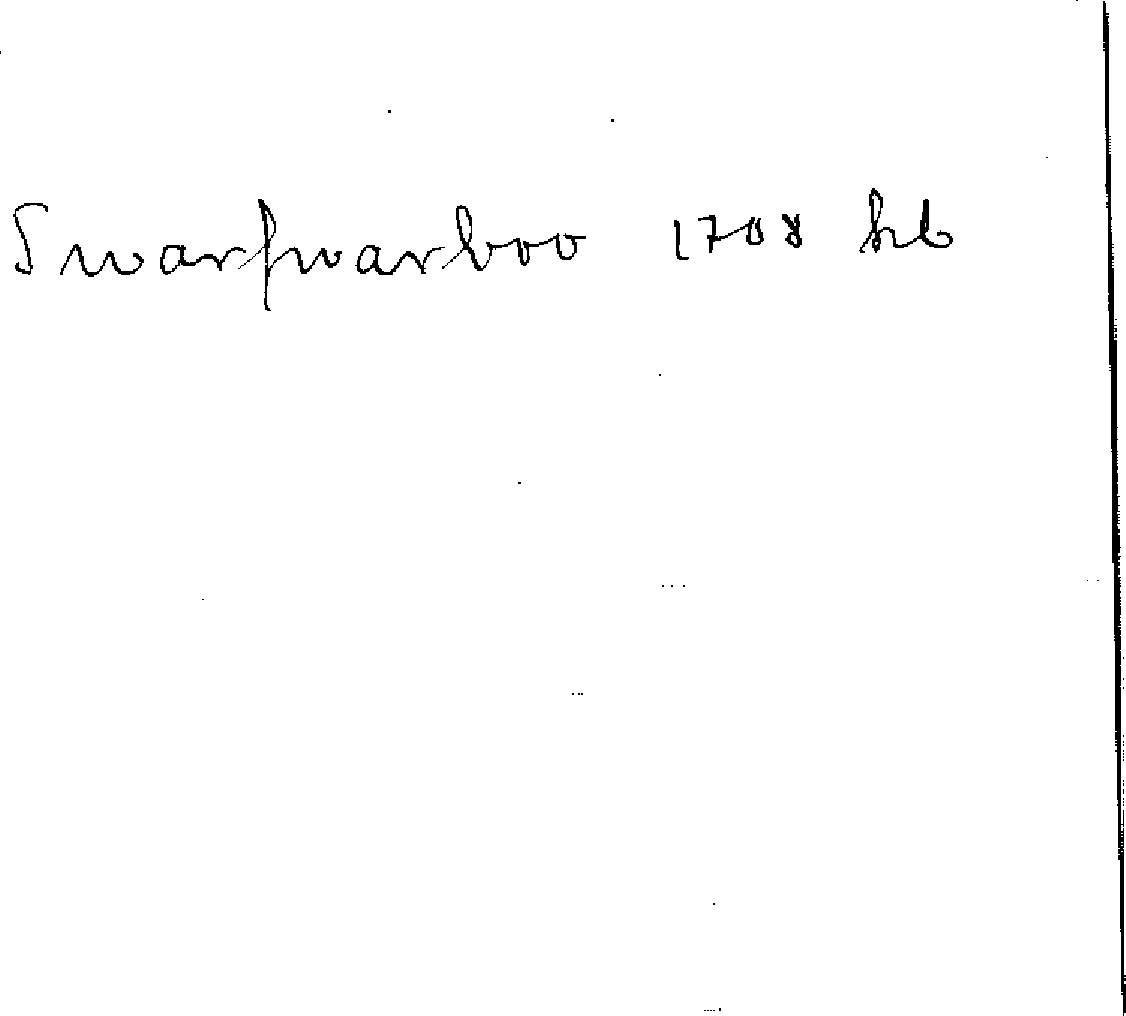 Swarfvarboo 1708 hb